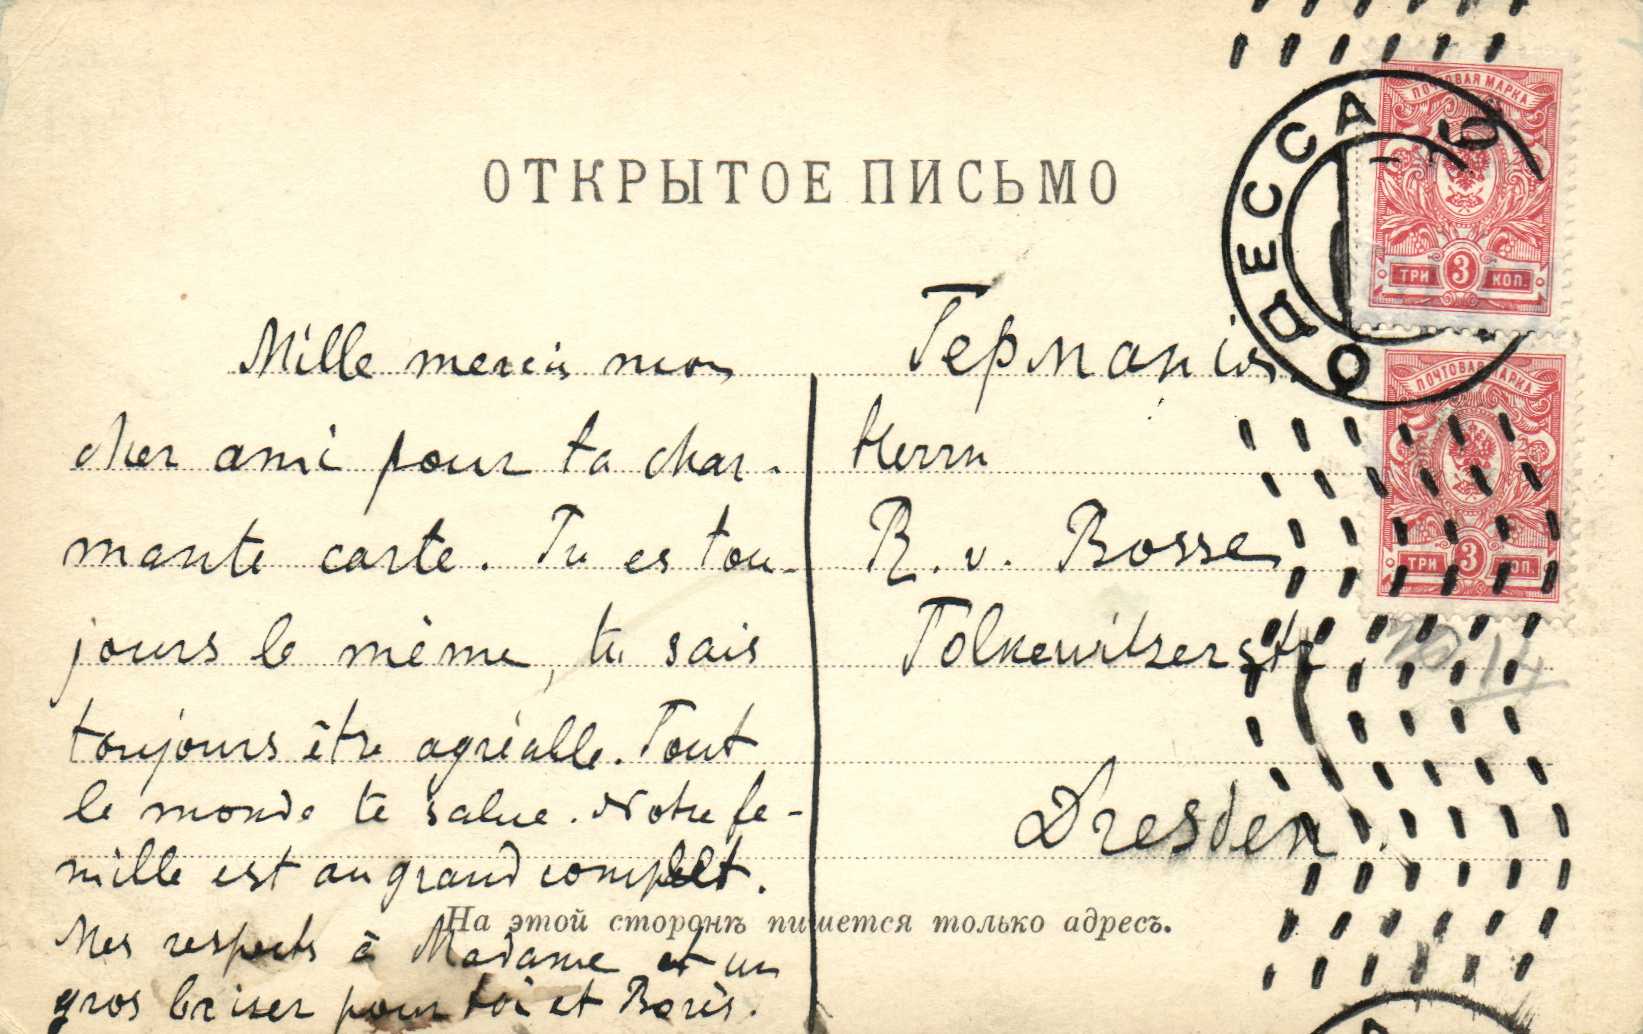 ОТКРЫТОЕ ПИСЬМО
ОДЕССА
ПОЧТОВАЯ МАРКА
ТРИ 3 КОП.
ПОЧТОВАЯ МАРКА
ТРИ 3 КОП.
Mille mercis mon
cher ami pour ta char-
mante carte. Tu es tou-
jours le même, tu sais
toujours être agréable. Tout
le monde te salue. Notre fa-
mille est au grand complet.
Mes respects à Madame et un
gros baiser pour toi et Boris.
Германія.
Herrn
R. v. Bosse
Tolkewitzerstr
14
Dresden.
На этой сторонѣ пишется только адресъ.